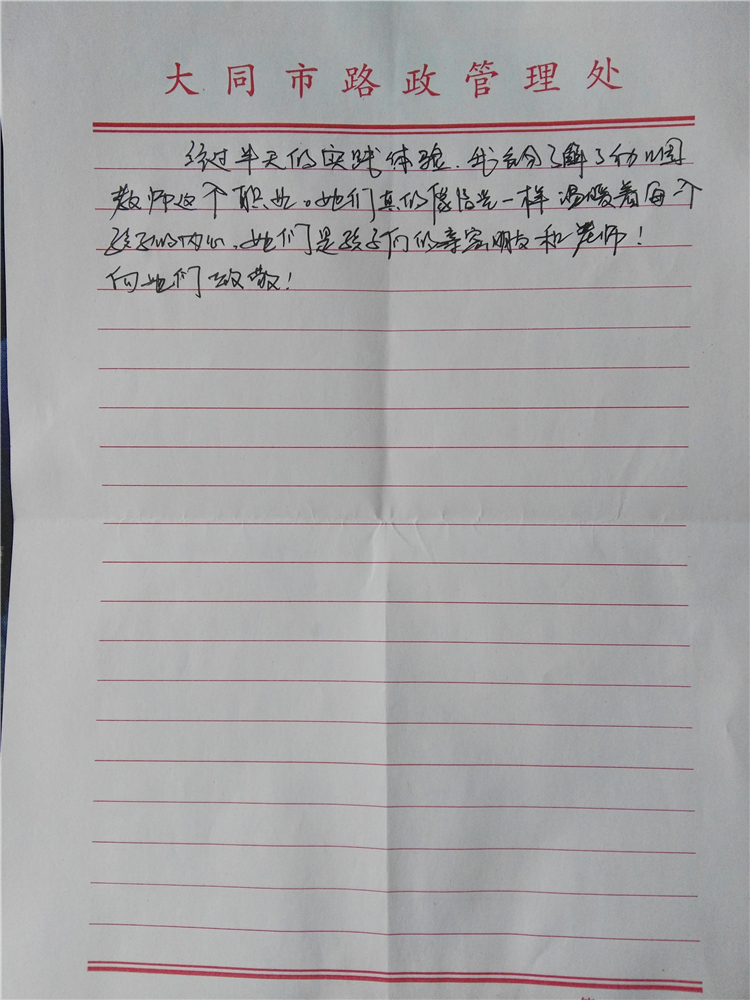 大同市路政管理处
经过半天的实践体验，我充分了解了幼儿园
教师这个职业。她们真的像阳光一样温暖着每一个
孩子的内心，她们是孩子们的亲密朋友和老师！
向她们致敬！